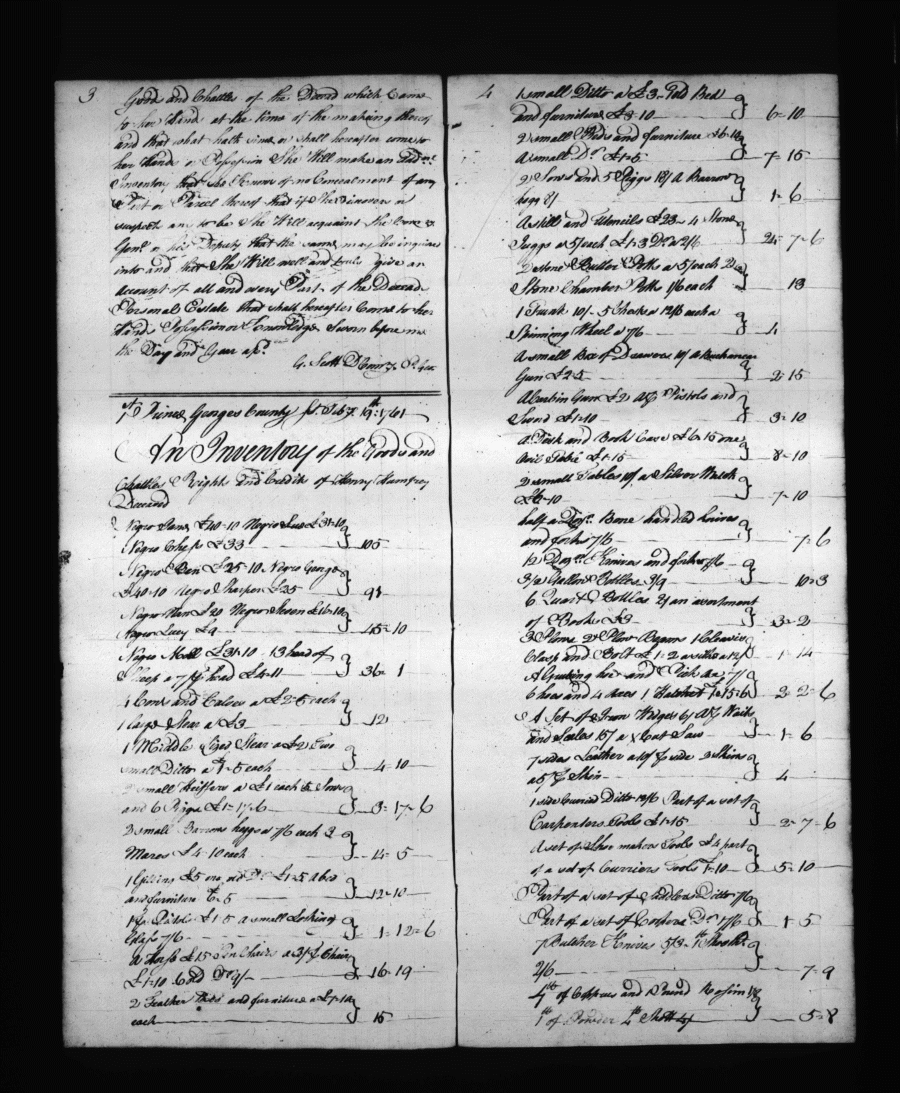 3
Goods and Chattles of the Deced which Came
to her Hands at the time of the makeing thereof
and that what hath since or shall hereafter come to
her Hands or Possession She Will make an Add.nl
Inventory that she Knows of no Concealment of any
Part or Parcel thereof that if She discovers or
suspects any to be She Will acquaint the Comy
Genl or his Deputy that the same may be inquired
into and that She Will well and truly give an
Account of all and every Part of the Deceased
Personal Estate that shall hereafter Come to her
Hands Possession or Knowledge Sworn before me
the Day and Year afd.
G. Scott D Comry. Pr. Geo
Prince Georges County Feb.y 19th 1761
An Inventory of the Goods and
Chattles Rights and Credits of Henry Humfrey
Deceased
Negro £40-10 Negro Sue £31-10
Negro Chess £33 105
Negro Ben £25-10 Negro George
£40-10 Negro £25 91
Negro Nan £20 Negro £16-10
Negro Lucy £9 45-10
Negro Moll £31-10 13 head of
Sheep a 7/ head £4-11 36-1
4 Cows and Calves a £2-5 each
1 large Stear a £3 12
1 Middle Sized Stear a £2 Two
small Ditto a £1-5 each 4-10
2 small Heiffers a £1 each 5 Sows
and 6 Piggs £1-17-6 3-17-6
2 small Barrows hoggs a 7/6 each 3
Mares £4-10 each 14-5
1 Gelding £5 one old Do. £1-5 a bed
and furniture £6-5 12-10
1 Pistols £1-5 a small Looking
Glass 7/6 1-12-6
a Horse £15 Ten Chairs a 3/ Chair
£1-10 6 old Do 9/- 16-19
2 Feather Beds and furniture a £7-10
each 15
4
1 small Ditto a £3 Bed
and furniture £3-10 6-10
2 small Beds and furniture £6-10
a small Do. £1-5 7-15
2 Sows and 5 Piggs 18/ A Barrow
hogg 8/ 1-6
A still and Utensils £23 4 Stone
Juggs a 5/ each £1-3 Do. a 2/6 24-7-6
2 Stone Butter Potts a 5/ each 2
Stone Chamber Potts 1/6 each 13
1 Trunk 10/- 5 Chests a 12/6 each a
Spinning Wheel a 7/6 4
a small Box of Drawers 10/ a Buchaneer
Gun £2-5 2-15
a Carbin Gun £2 Pistols and
Sword £1-10 3-10
a Desk and Book Case £6-15 one
Table £1-15 8-10
2 small Tables 10/ a Silver Watch
£6-10 7-10
half a Doz. Bone handled knives
and forks 7/6 7-6
1/2 Doz. Knives and forks 7/6
3 Gallon Bottles 3/9 10-3
6 Quart Bottles 2/ an assortment
of Books £3 3-2
3 Plows 2 Plow Beams 1 Cleavis
Clasp and Bolt £1-2 a 12/ 1-14
A Grubing hoe and Pick axe 7/
6 hoes and 4 axes 1 Hatchet £1-15-6 2-2-6
A Set of Iron Wedges 6/ Waits
and Scales 15/ a Xcut Saw 1-6
7 sides Leather a 10/ side 2 Skins
a 5/ Skin 4
1 side Curried Ditto 12/6 Part of a set of
Carpenters Tools £1-15 2-7-6
A set of Shoe makers Tools £4 part
of a set of Curriers Tools £1-10 5-10
Part of a set of Sadlers Ditto 7/6
Part of a set of Coopers Do. 17/6 1-5
7 Butcher Knives 5/3
2/6 7-9
4 lb of Copperas and Pound Rosin
1 lb of Powder 4 lb Shott 4/ 5-8